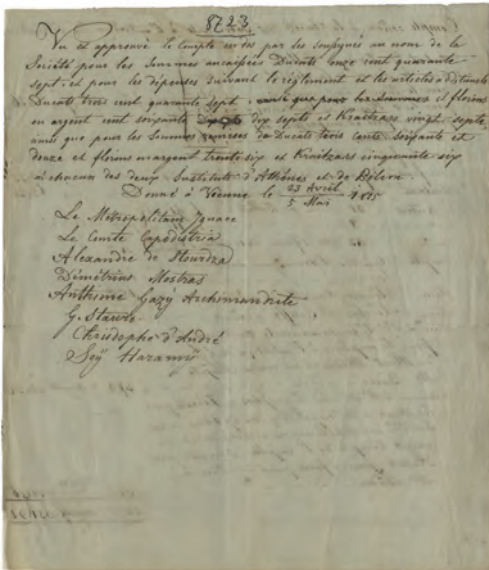 8723
Vu et approuvé le Compte par les soussignés au nom de la
Société pour les Sommes encaissées Ducats onze cent quarante
sept, et pour les dépenses suivant le règlement et les articles additionels
Ducats trois cent quarante sept, et florins
en argent cent soixante dix septs et Kraitzars vingt septs
ainsi que pour les Sommes remises de Ducats trois cents soixante et
douze et florins en argent trente six et Kraitzars cinquante six
à chacun des deux Instituts d'Athènes et de Pélion.
Donné à Vienne le 23 Avril 1815
5 Mai
Le Métropolitain Ignace
Le Comte Capodistria
Alexandre de Stourdza
Démétrius Mostras
Anthime Gazÿ Archimandrite
G. Stawro
Christophe d'André